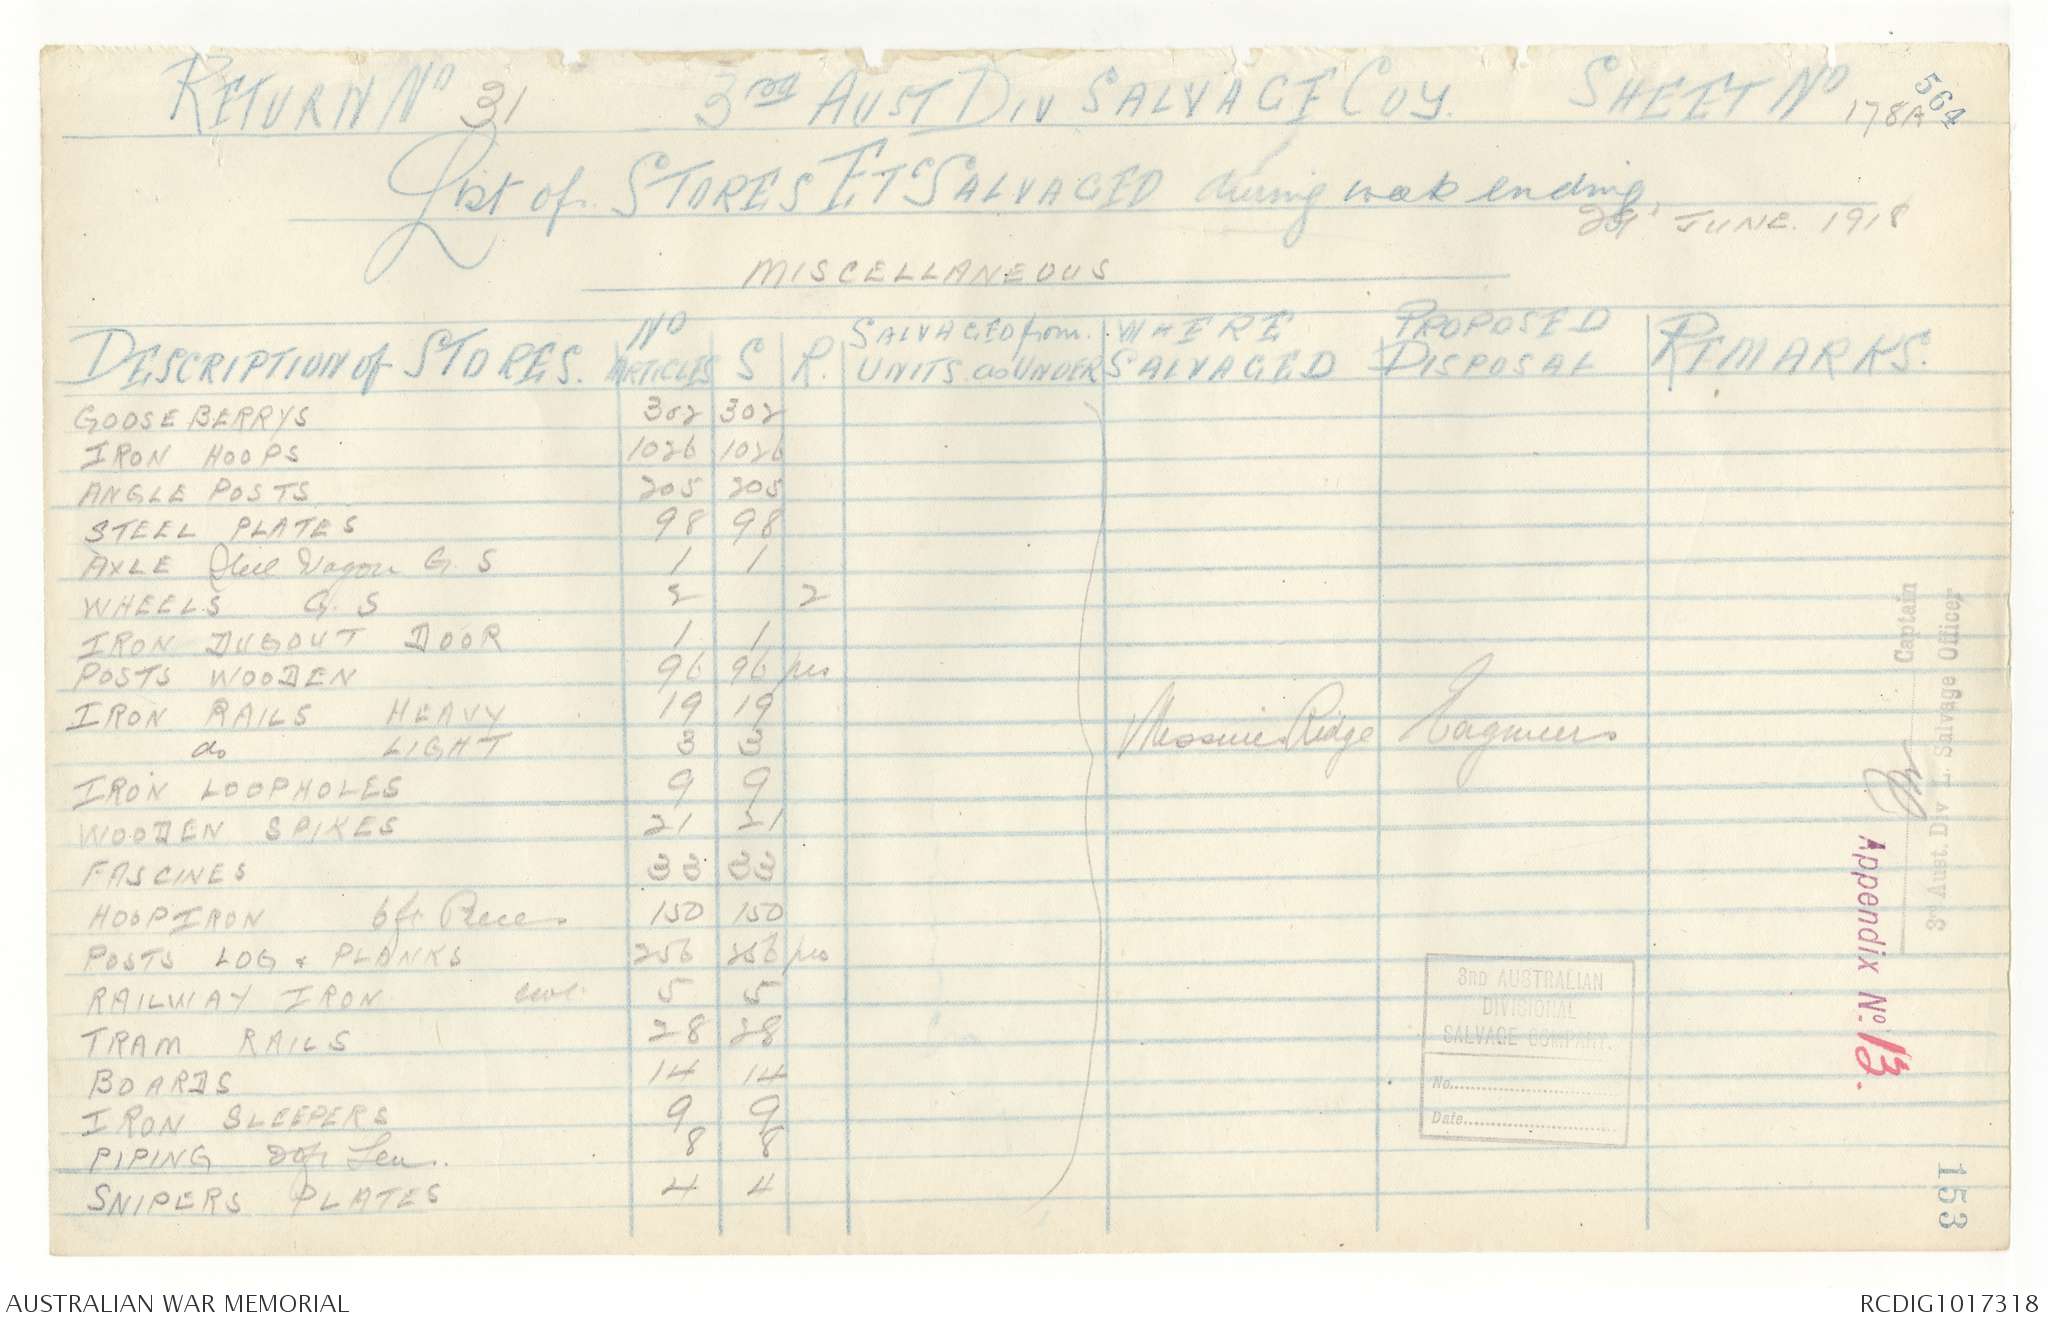 RETURN No 31 3RD AUST DIV SALVAGE COY. SHEET No 178A
564
List of STORES ETC SALVAGED during week ending
JUNE. 1918
MISCELLANEOUS
DESCRIPTION of STORES. No ARTICLES S R. SALVAGED from UNITS as UNDER WHERE SALVAGED PROPOSED DISPOSAL REMARKS.
GOOSEBERRYS 302 302
IRON HOOPS 1026 1026
ANGLE POSTS 205 205
STEEL PLATES 98 98
AXLE Wagon G. S 1 1
WHEELS G. S 2 2
IRON DUGOUT DOOR 1 1
POSTS WOODEN 96 96 pcs
IRON RAILS HEAVY 19 19
do LIGHT 3 3
Messines Ridge Engineers
IRON LOOPHOLES 9 9
WOODEN SPIKES 21 21
FASCINES 33 33
HOOP IRON 6ft Pieces 150 150
POSTS LOG & PLANKS 256 256 pcs
RAILWAY IRON cwt 5 5
TRAM RAILS 28 28
BOARDS 14 14
IRON SLEEPERS 9 9
PIPING 8 8
SNIPERS PLATES 4 4
Captain
3rd Aust. Div. Salvage Officer
Appendix No. 13.
3RD AUSTRALIAN
DIVISIONAL
SALVAGE COMPANY.
No.
Date
153
AUSTRALIAN WAR MEMORIAL RCDIG1017318